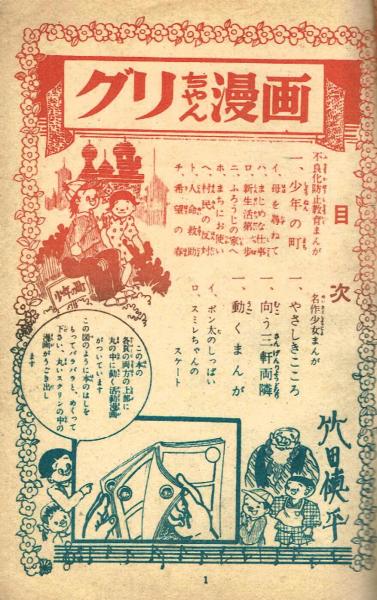 グリちゃん漫画
目次
不良化防止教育まんが
一、少年の町
イ、母を尋ねて
ハ、まじめな仕事
ロ、新生活第一歩
ニ、ふろうじの家へ
ホ、まちにお使い
ヘ、村民の反対
ト、人命救助
チ、希望の春
名作少女まんが
一、やさしきこころ
一、向う三軒両隣
一、動くまんが
イ、ポン太のしっぱい
ロ、スミレちゃんの
スケート
この本の
各頁の両方の上部に
丸の中に動く活動漫画
がついています
この図のように本のはしを
もってパラパラと、めくって
下さい、丸いスクリンの中の
漫画がうごき出し
ます
少年の町
1